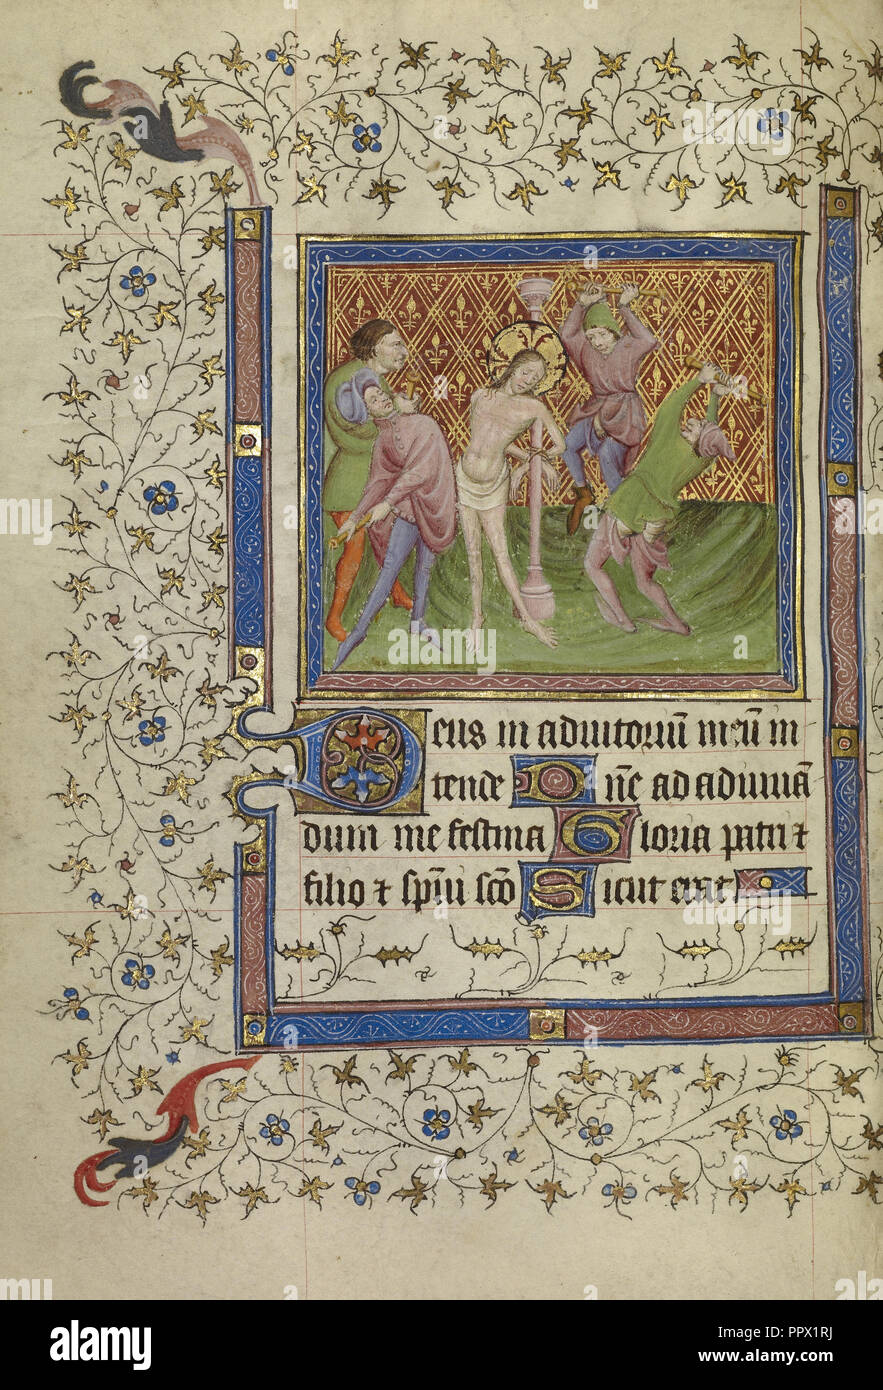 Deus in adiutoriū meū in
tende Dn̄e ad adiuuā
dum me festina Gloria patri ⁊
filio ⁊ sp̄ui sc̄o Sicut erat
alamy
Image ID: PPX1RJ
www.alamy.com